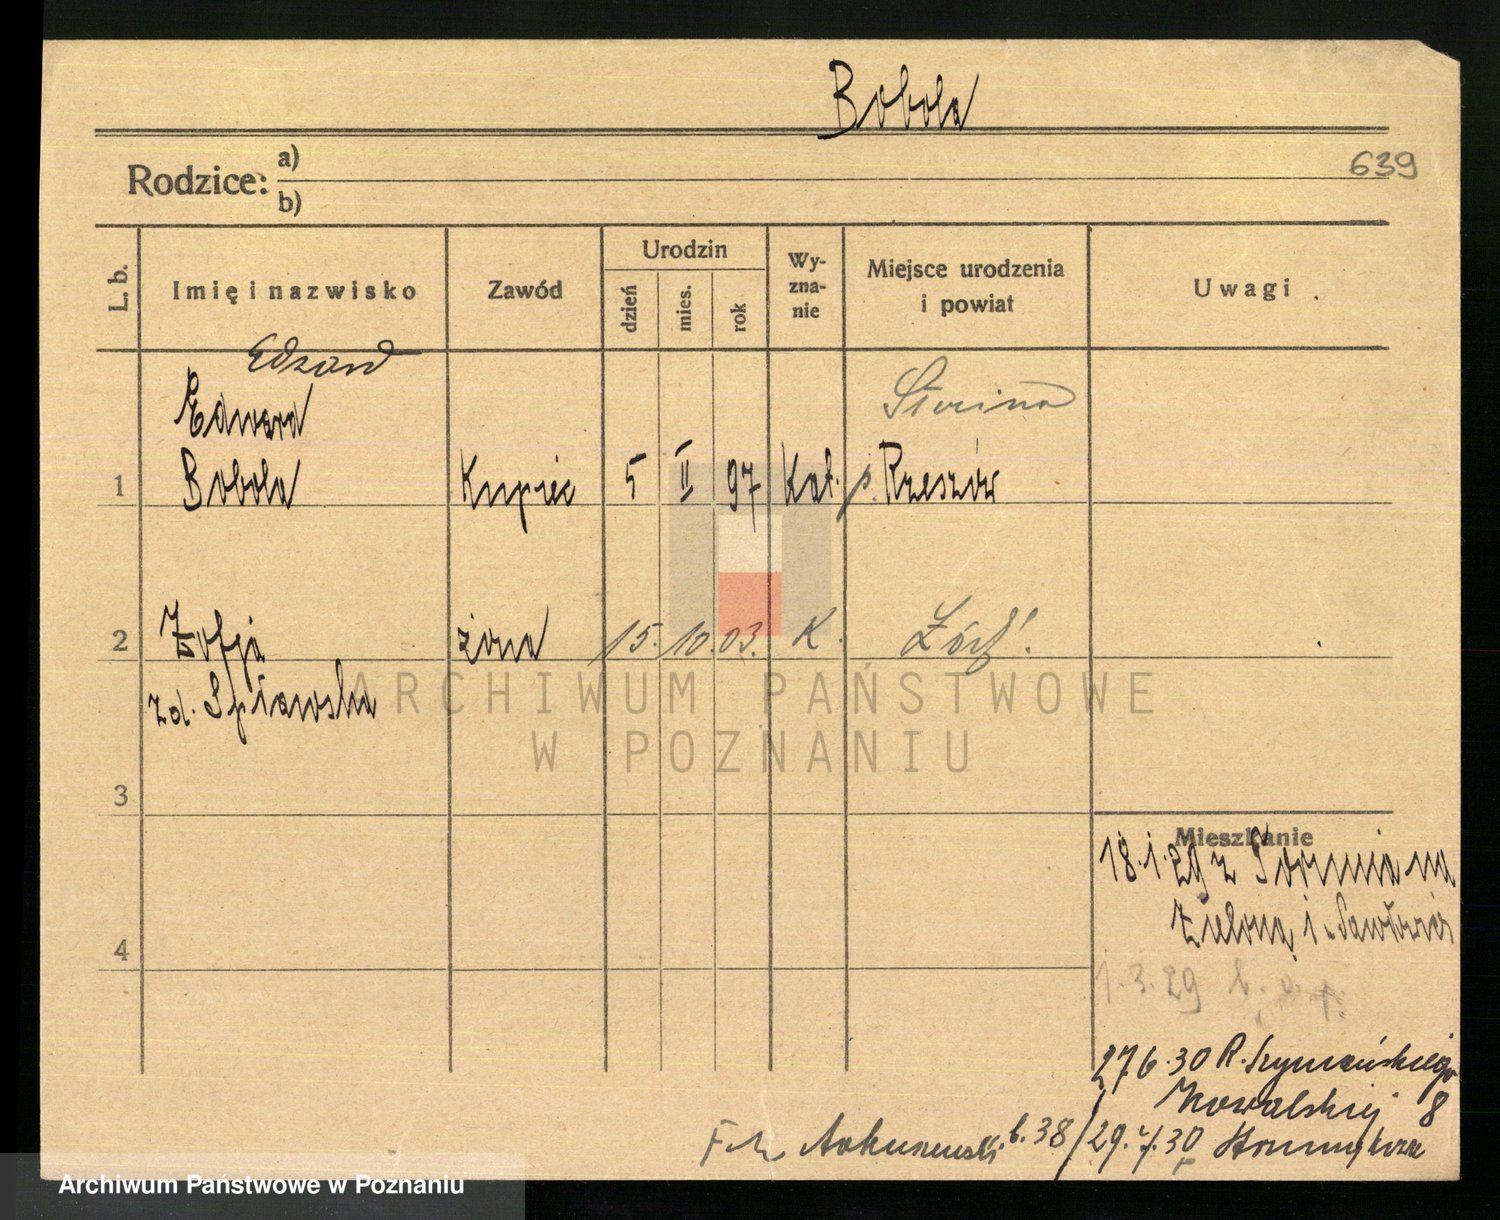 Bobola
639
Rodzice: a)
b)
L. b.
Imię i nazwisko
Zawód
Urodzin
dzień
mies.
rok
Wy-
zna-
nie
Miejsce urodzenia
i powiat
Uwagi
Edward
1 Bobola Kupiec 5 II 97 Kat. p. Rzeszów
2 Zofja żona 15. 10. 03. K.
zd. Spławska
3
4
Mieszkanie
18.1.29 z Torunia na
Zieloną
1.3.29
27.6.30 R. Szymańskiego
Kowalskiej 8
38/29.7.30
ARCHIWUM PAŃSTWOWE
W POZNANIU
Archiwum Państwowe w Poznaniu